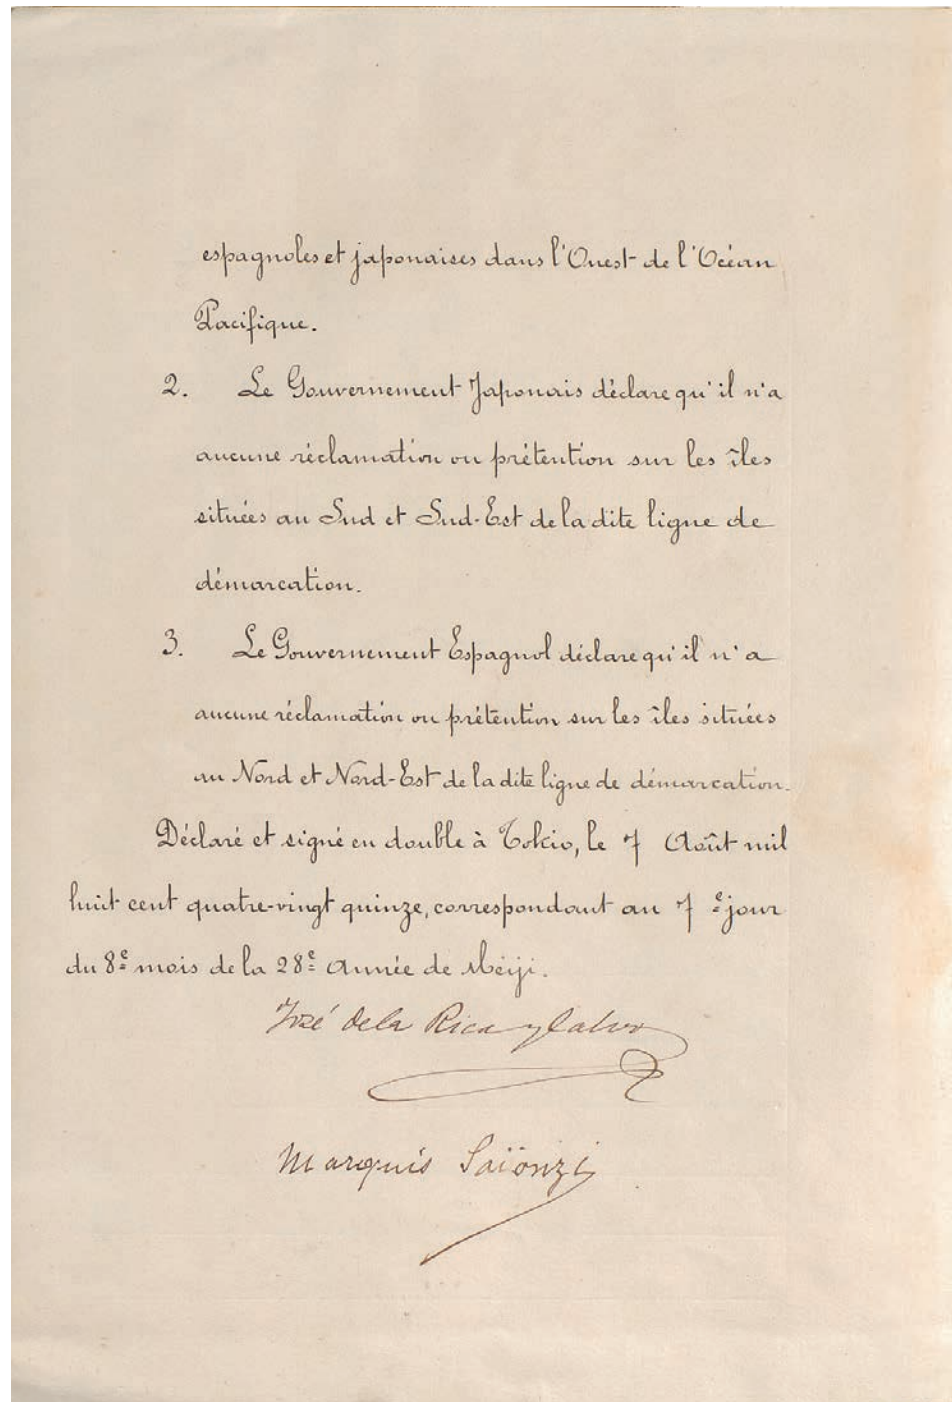 espagnoles et japonaises dans l'Ouest de l'Océan
Pacifique.
2. Le Gouvernement Japonais déclare qu'il n'a
aucune réclamation ou prétention sur les îles
situées au Sud et Sud-Est de la dite ligne de
démarcation.
3. Le Gouvernement Espagnol déclare qu'il n'a
aucune réclamation ou prétention sur les îles situées
au Nord et Nord-Est de la dite ligne de démarcation.
Déclaré et signé en double à Tokio, le 7 Août mil
huit cent quatre-vingt quinze, correspondant au 7e jour
du 8e mois de la 28e Année de Meiji.
José de la Rica y Calvo
Marquis Saïonzi